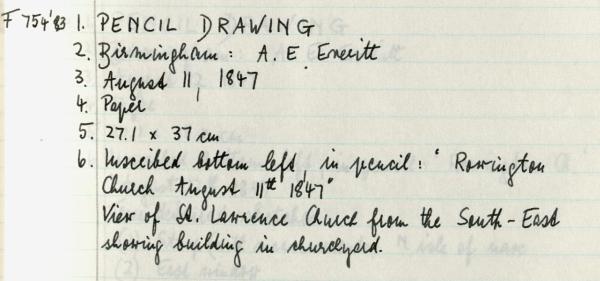 F 754'83 1. PENCIL DRAWING
2. Birmingham: A. E. Everitt
3. August 11, 1847
4. Paper
5. 27.1 x 37 cm
6. Inscribed bottom left, in pencil: "Rowington
Church August 11th 1847"
View of St. Lawrence Church from the South-East
showing building in churchyard.